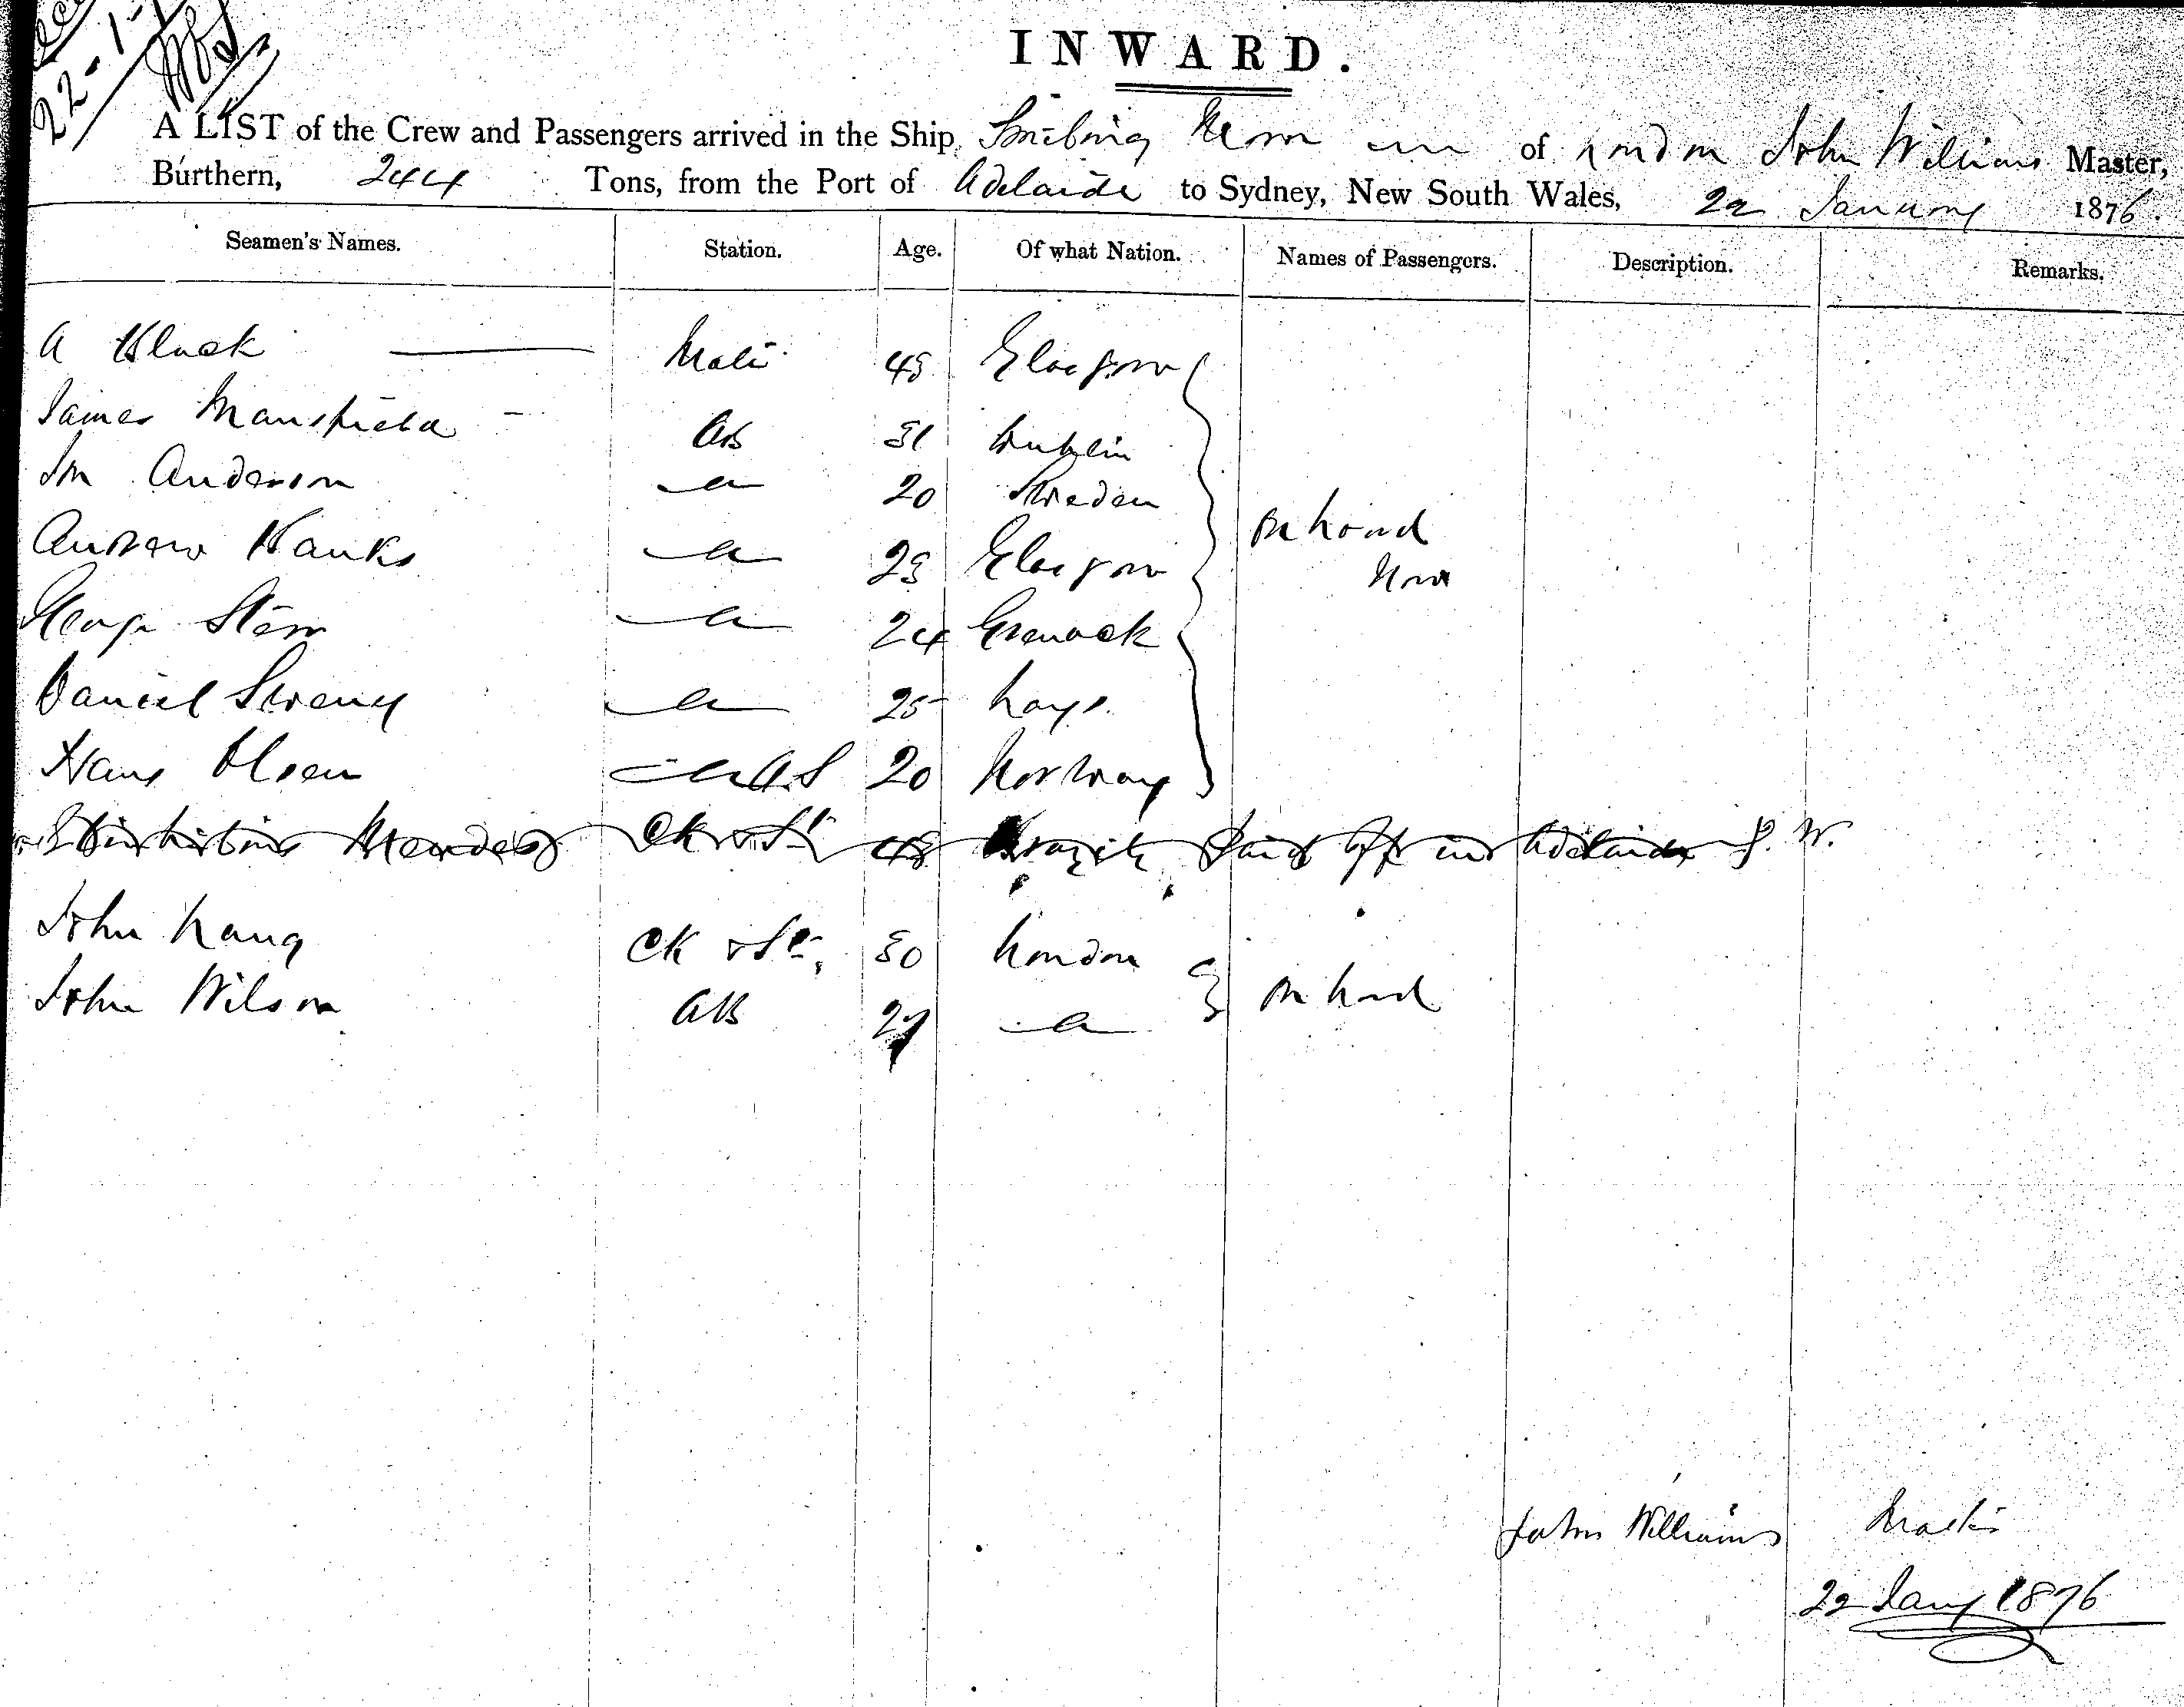 22-1-
INWARD.
A LIST of the Crew and Passengers arrived in the Ship of London John Williams Master,
Burthern, 244 Tons, from the Port of Adelaide to Sydney, New South Wales, 22 January 1876.
Seamen's Names. Station. Age. Of what Nation. Names of Passengers. Description. Remarks.
A Black Mate 45 Glasgow
James Mansfield AB 31 Dublin
Jn Anderson 20 Sweden
Andrew Hanks 25 Glasgow
George 24 Greenock
Daniel Sweny 25
Hans Olsen OS 20 Norway
on board
now
Mendes Ck & St 48 Brazil Paid Off in Adelaide J. W.
John Lang Ck & St 30 London
John Wilson AB 27
on board
John Williams Master
22 Jany 1876